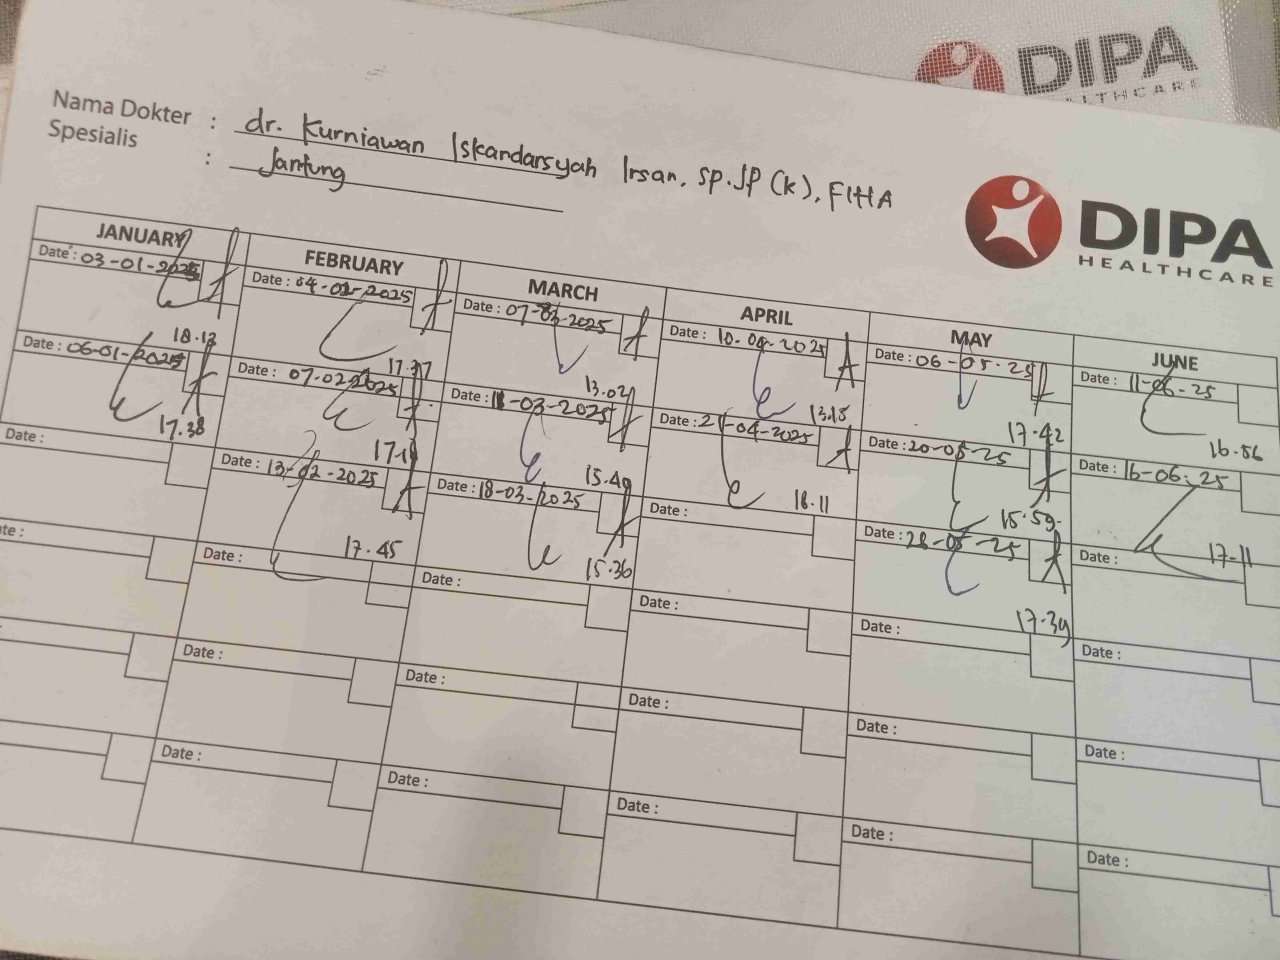 DIPA
HEALTHCARE
Nama Dokter : dr. Kurniawan Iskandarsyah Irsan, Sp.JP (K), FIHA
Spesialis : Jantung
DIPA
HEALTHCARE
JANUARY
Date : 03-01-2025
18.13
Date : 06-01-2025
17.38
Date :
Date :
FEBRUARY
Date : 04-02-2025
17.37
Date : 07-02-2025
Date : 13-02-2025
17.45
Date :
Date :
Date :
MARCH
Date : 07-03-2025
13.02
Date : -03-2025
15.49
Date : 18-03-2025
15.36
Date :
Date :
Date :
APRIL
Date : 10-04-2025
13.15
Date : 21-04-2025
Date :
Date :
Date :
Date :
MAY
Date : 06-05-25
17.42
Date : 20-05-25
15.59
Date : 28-05-25
17.39
Date :
Date :
Date :
JUNE
Date : 11-06-25
16.56
Date : 16-06-25
17-11
Date :
Date :
Date :
Date :